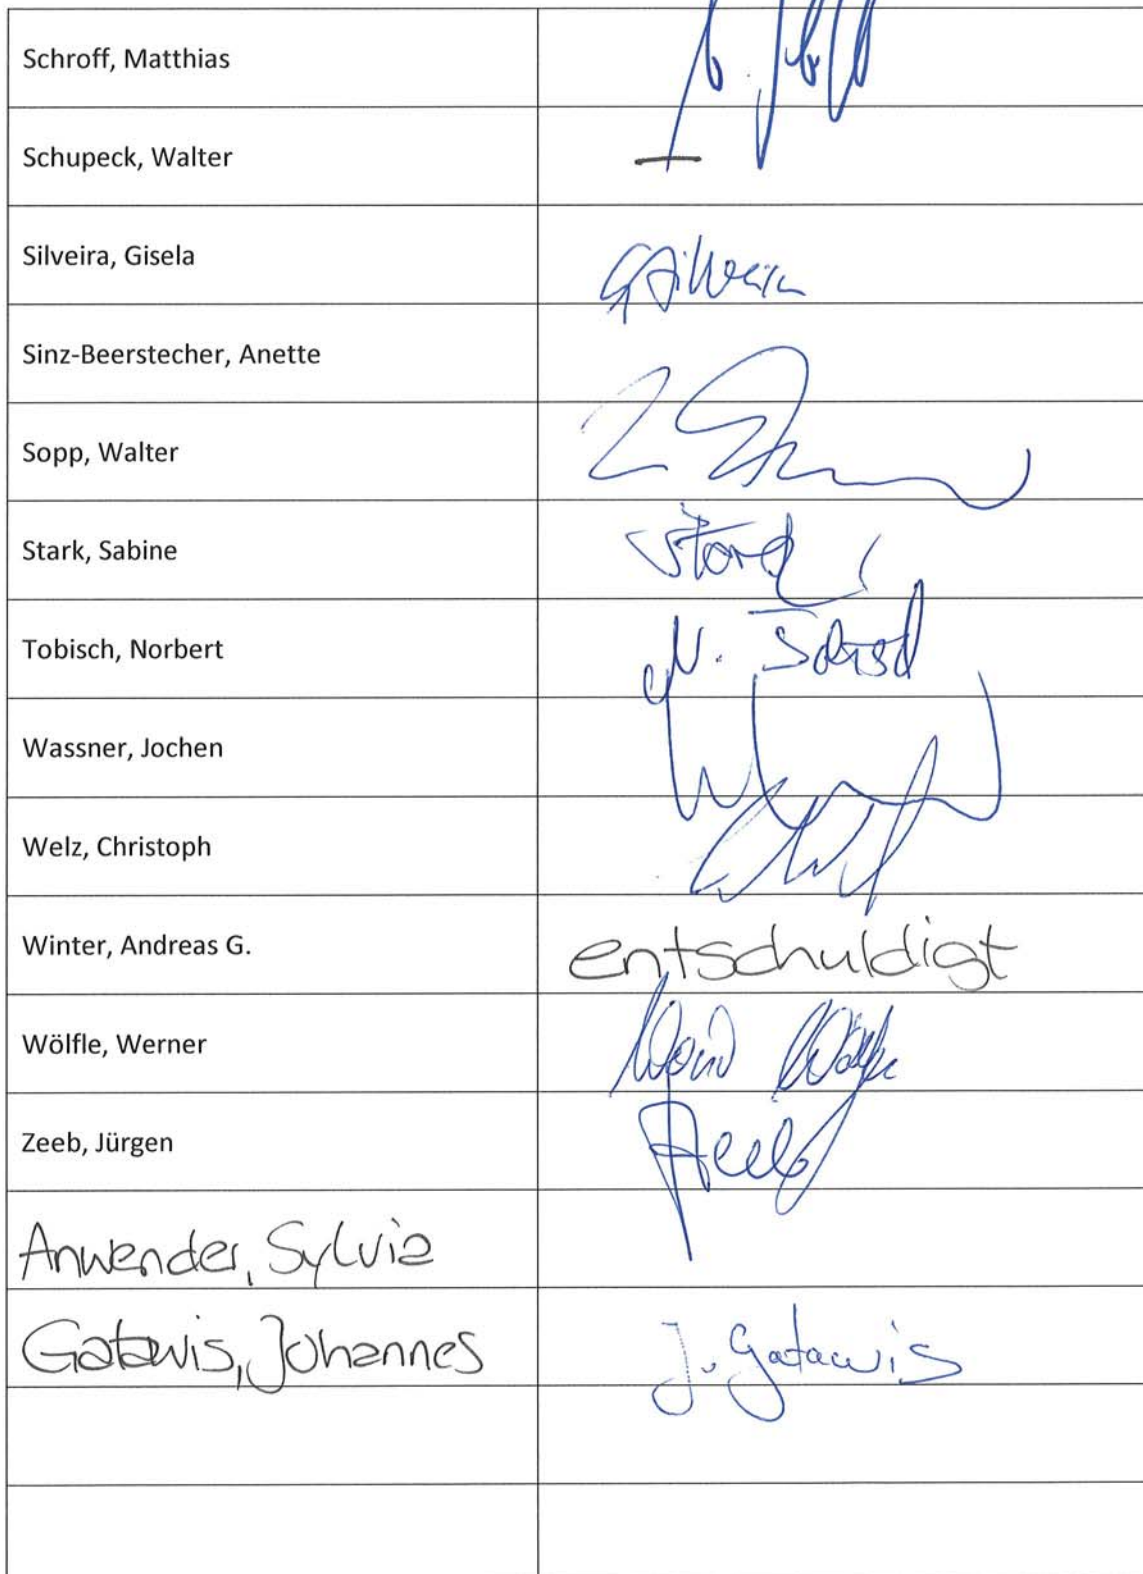 Schroff, Matthias
Schupeck, Walter
Silveira, Gisela
Sinz-Beerstecher, Anette
Sopp, Walter
Stark, Sabine
Tobisch, Norbert
Wassner, Jochen
Welz, Christoph
Winter, Andreas G. entschuldigt
Wölfle, Werner
Zeeb, Jürgen Zeeb
Anwender, Sylvia
Gatawis, Johannes J. Gatawis